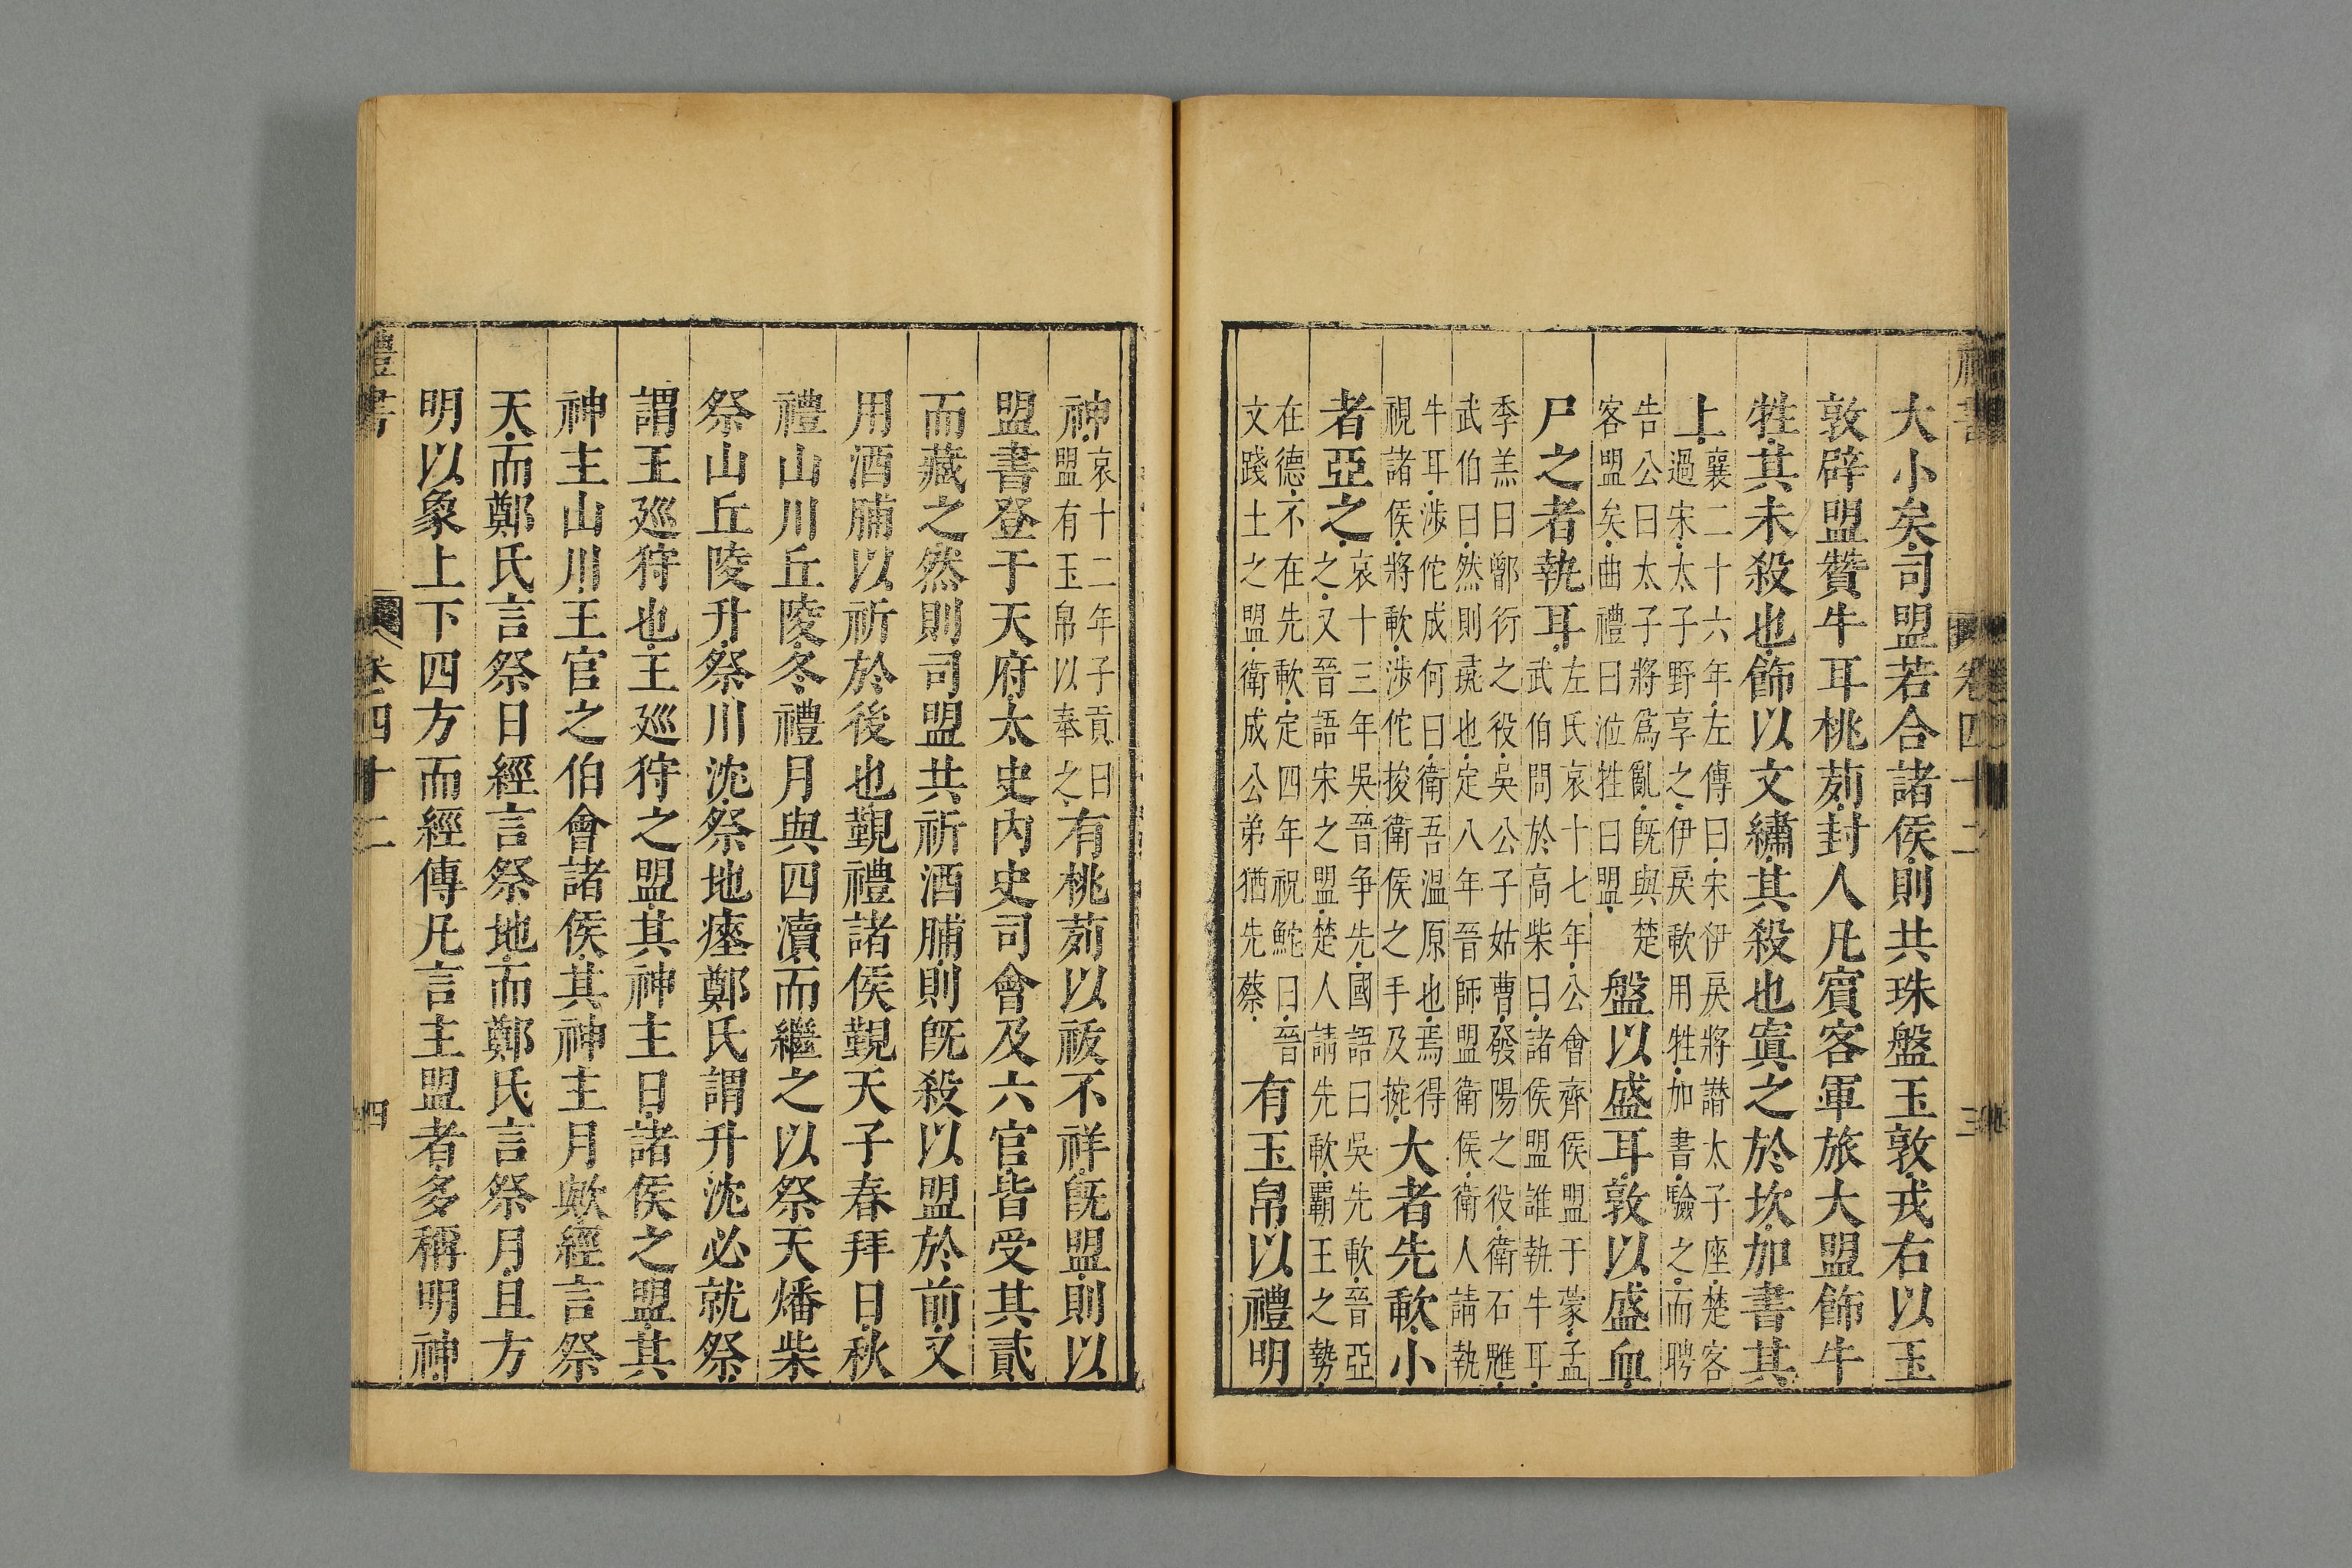 禮書
卷四十二
三
大小矣司盟若合諸侯則共珠盤玉敦戎右以玉
敦辟盟贊牛耳桃茢封人凡賓客軍旅大盟飾牛
牲其未殺也飾以文繡其殺也寘之於坎加書其
上襄二十六年左傳曰宋伊戾將譖太子座楚客
過宋太子野享之伊戾歃用牲加書驗之而聘
告公曰太子將爲亂旣與楚
客盟矣曲禮曰涖牲曰盟
盤以盛耳敦以盛血
尸之者執耳左氏哀十七年公會齊侯盟于蒙孟
武伯問於高柴曰諸侯盟誰執牛耳
季羔曰鄫衍之役吳公子姑曹發陽之役衛石魋
武伯曰然則彘也定八年晉師盟衛侯衛人請執
牛耳涉佗成何曰衛吾溫原也焉得
視諸侯將歃涉佗捘衛侯之手及捥
大者先歃小
者亞之哀十三年吳晉争先國語曰吳先歃晉亞
之又晉語宋之盟楚人請先歃覇王之勢
在德不在先歃定四年祝鮀曰晉
文踐土之盟衛成公弟猶先蔡
有玉帛以禮明
神哀十二年子貢曰
盟有玉帛以奉之
有桃茢以祓不祥旣盟則以
盟書登于天府太史內史司會及六官皆受其貳
而藏之然則司盟共祈酒脯則旣殺以盟於前又
用酒脯以祈於後也覲禮諸侯覲天子春拜日秋
禮山川丘陵冬禮月與四瀆而繼之以祭天燔柴
祭山丘陵升祭川沈祭地瘞鄭氏謂升沈必就祭
謂王廵狩也王廵狩之盟其神主日諸侯之盟其
神主山川王官之伯會諸侯其神主月歟經言祭
天而鄭氏言祭日經言祭地而鄭氏言祭月且方
明以象上下四方而經傳凡言主盟者多稱明神
禮書
卷四十二
四